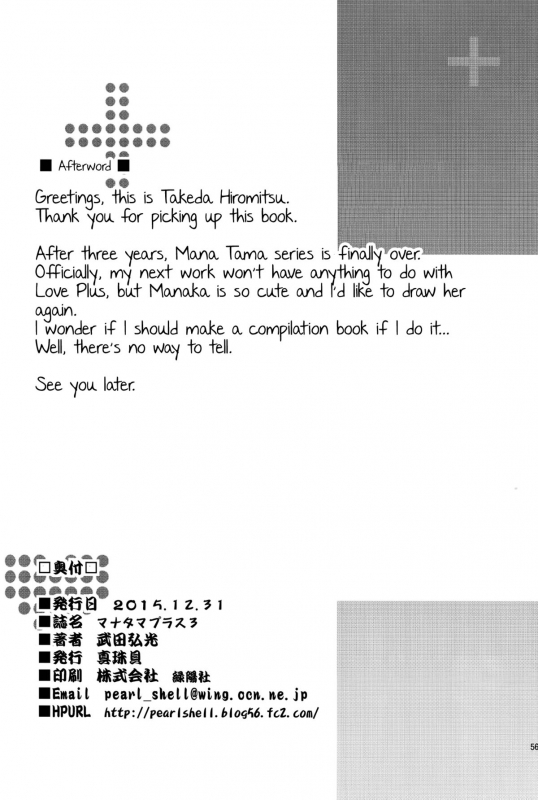 ■ Afterword ■
Greetings, this is Takeda Hiromitsu.
Thank you for picking up this book.
After three years, Mana Tama series is finally over.
Officially, my next work won't have anything to do with
Love Plus, but Manaka is so cute and I'd like to draw her
again.
I wonder if I should make a compilation book if I do it...
Well, there's no way to tell.
See you later.
□奥付□
■発行日 2015.12.31
■誌名 マナタマプラス3
■著者 武田弘光
■発行 真珠貝
■印刷 株式会社 緑陽社
■Email pearl_shell@wing.ocn.ne.jp
■HPURL http://pearlshell.blog56.fc2.com/
56